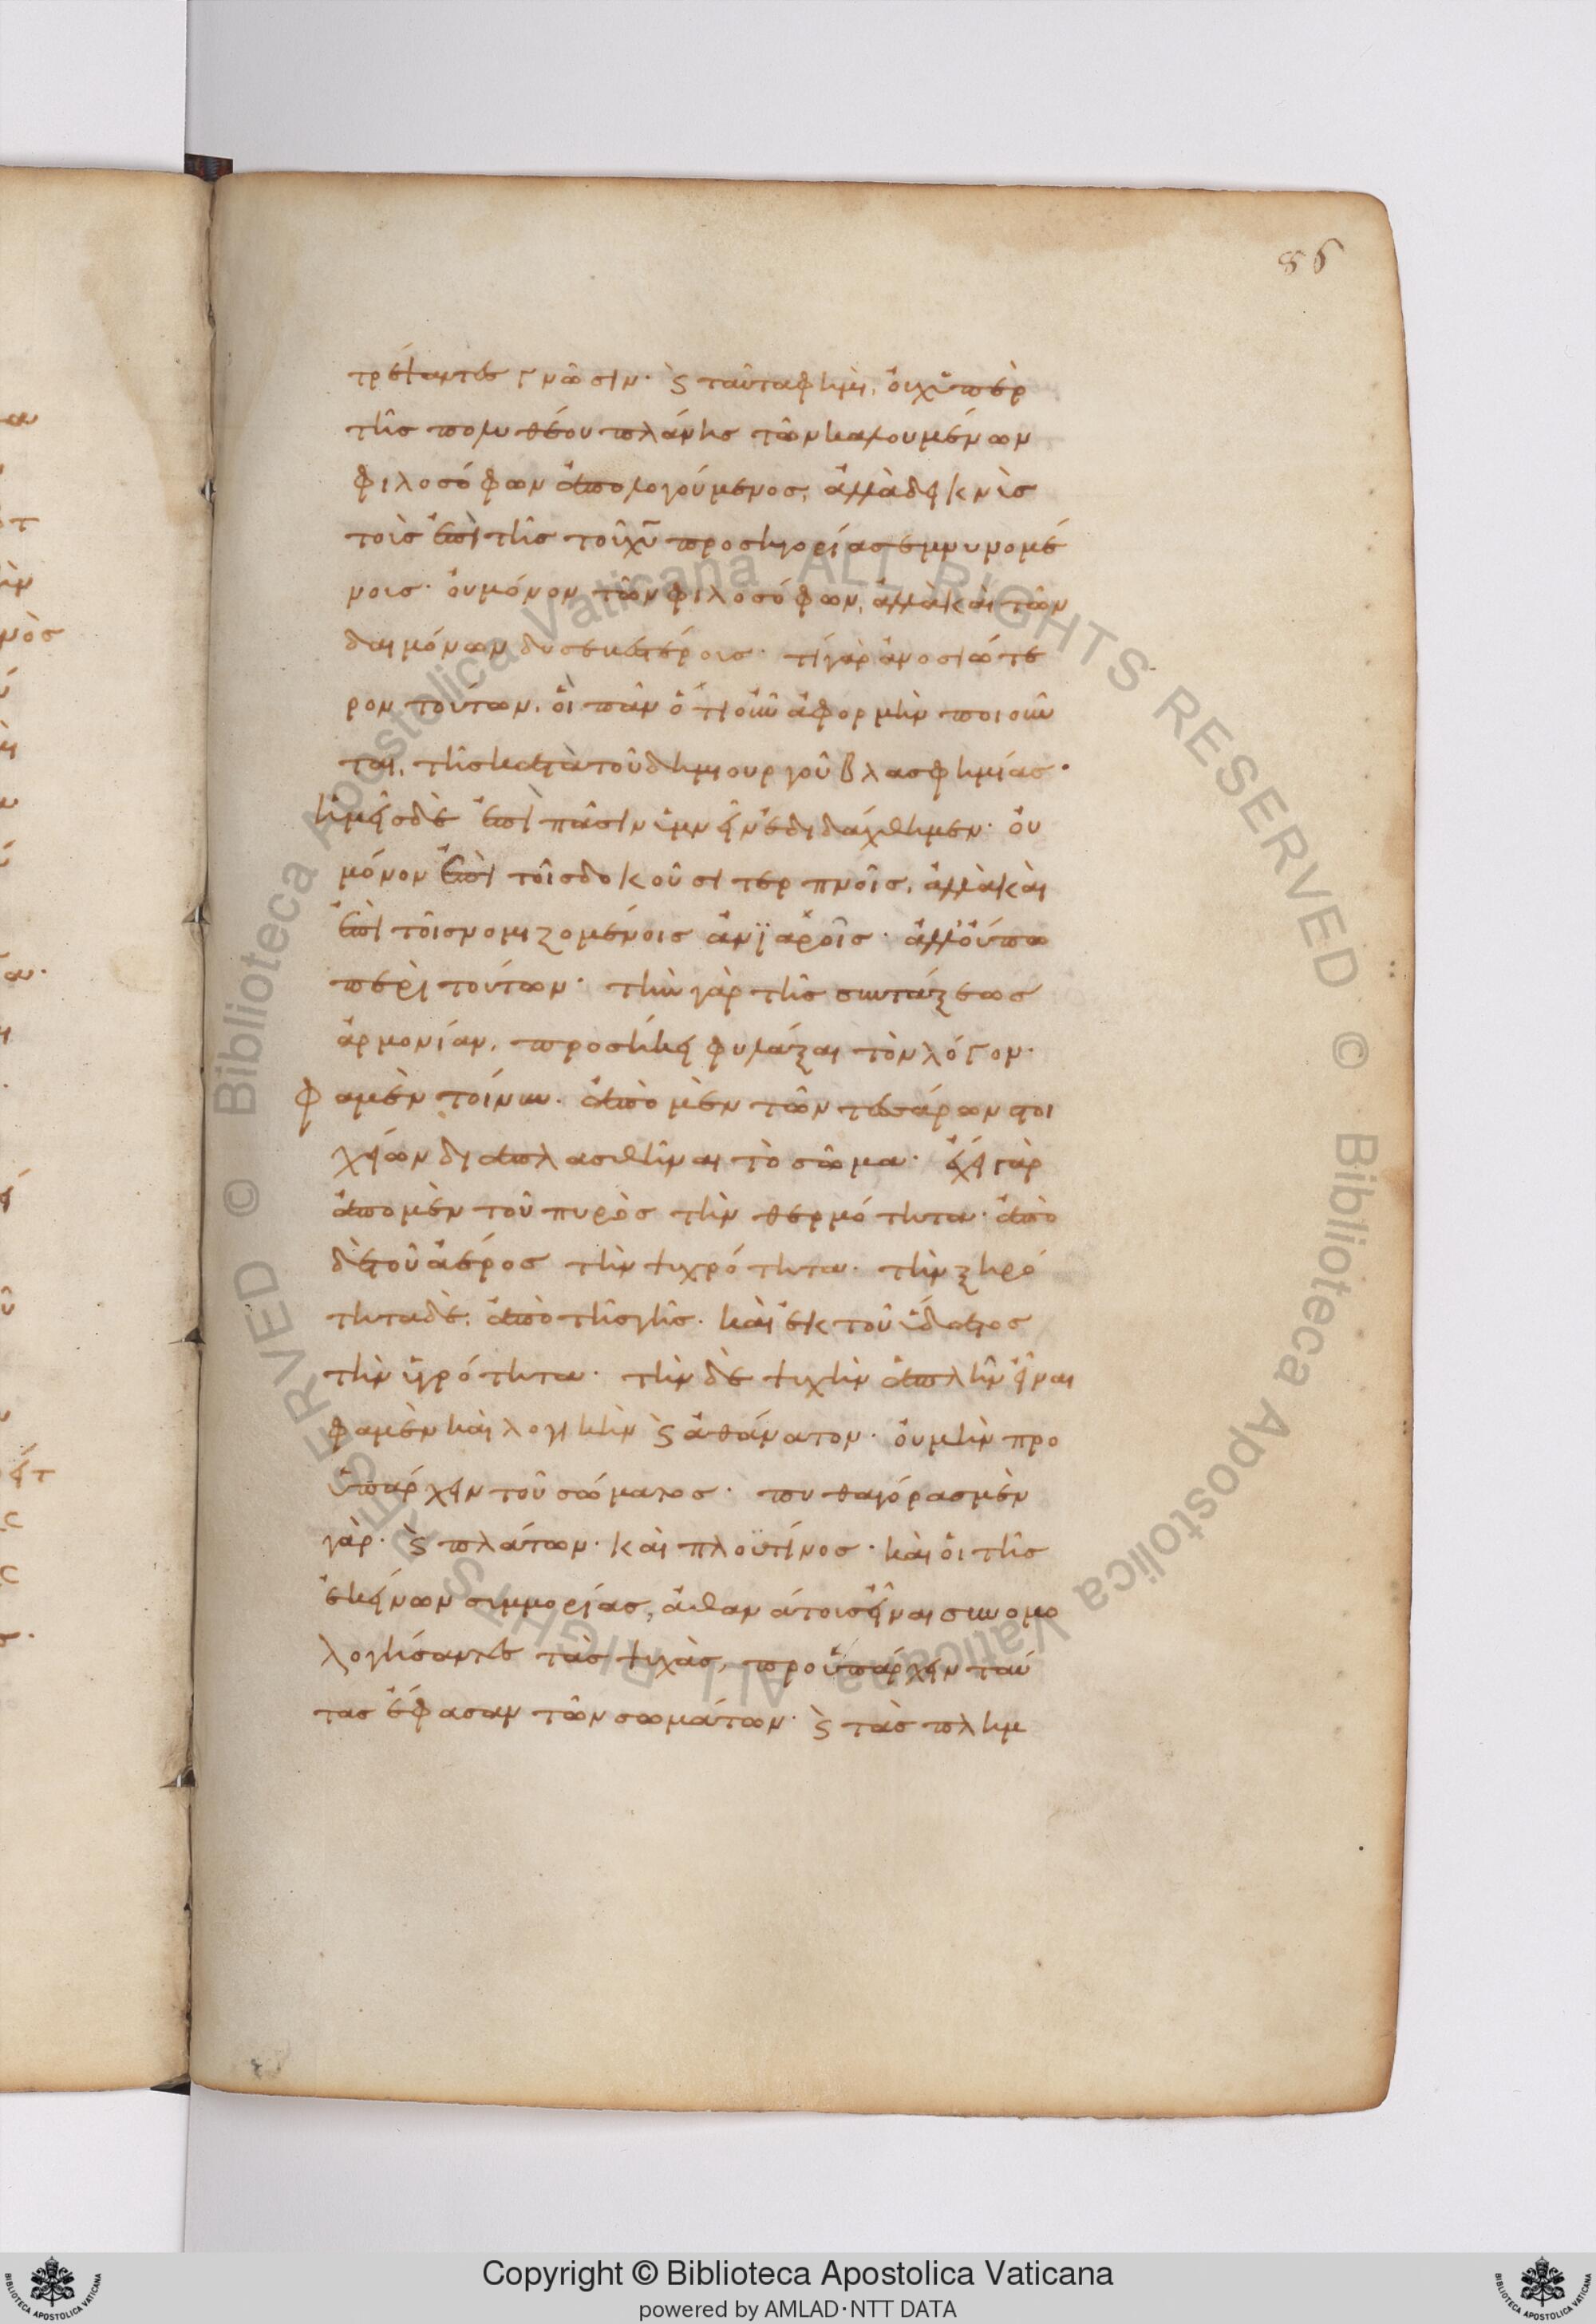 86
τρέψαντες γνῶσιν· ϗ ταῦτα φημι, οὐχ ὑπὲρ
τῆς πολυθέου πλάνης τῶν καλουμένων
φιλοσόφων ἀπολογούμενος, ἀλλὰ δεικνὺς
τοὺς ἐπὶ τῆς τοῦ χυ προσηγορίας σεμνυνομέ
νους· οὐ μόνον τῶν φιλοσόφων, ἀλλὰ καὶ τῶν
δαιμόνων δυσσεβεστέρους· τί γὰρ ἀνοσιώτε
ρον τούτων, οἳ πᾶν ὁτιοῦν ἀφορμὴν ποιοῦν
ται, τῆς κατὰ τοῦ δημιουργοῦ βλασφημίας·
ἡμεῖς δὲ ἐπὶ πᾶσιν ὑμνεῖν ἐδιδάχθημεν· οὐ
μόνον ἐπὶ τοῖς δοκοῦσι τερπνοῖς, ἀλλὰ καὶ
ἐπὶ τοῖς νομιζομένοις ἀνϊαροῖς· ἀλλ' οὔπω
περὶ τούτων· τὴν γὰρ τῆς συντάξεως
ἁρμονίαν, προσήκει φυλάξαι τὸν λόγον·
φαμὲν τοίνυν· ἀπὸ μὲν τῶν τεσσάρων στοι
χείων διαπλασθῆναι τὸ σῶμα· ἔχει γὰρ
ἀπο μὲν τοῦ πυρὸς τὴν θερμότητα· ἀπὸ
δὲ τοῦ ἀέρος τὴν ψυχρότητα· τὴν ξηρό
τητα δὲ, ἀπὸ τῆς γῆς· καὶ ἐκ τοῦ ὕδατος
τὴν ὑγρότητα· τὴν δὲ ψυχὴν ἁπλῆν εἶναι
φαμὲν καὶ λογικὴν ϗ ἀθάνατον· οὐ μὴν προ
ϋπάρχειν τοῦ σώματος· πυθαγόρας μὲν
γὰρ· ϗ πλάτων· καὶ πλουτίνος· καὶ οἱ τῆς
ἐκείνων συμμορίας, ἀθανάτους εἶναι συνομο
λογήσαντες τὰς ψυχὰς, προϋπάρχειν ταύ
τας ἔφασαν τῶν σωμάτων· ϗ τὰς πλημ
Copyright © Biblioteca Apostolica Vaticana
powered by AMLAD·NTT DATA